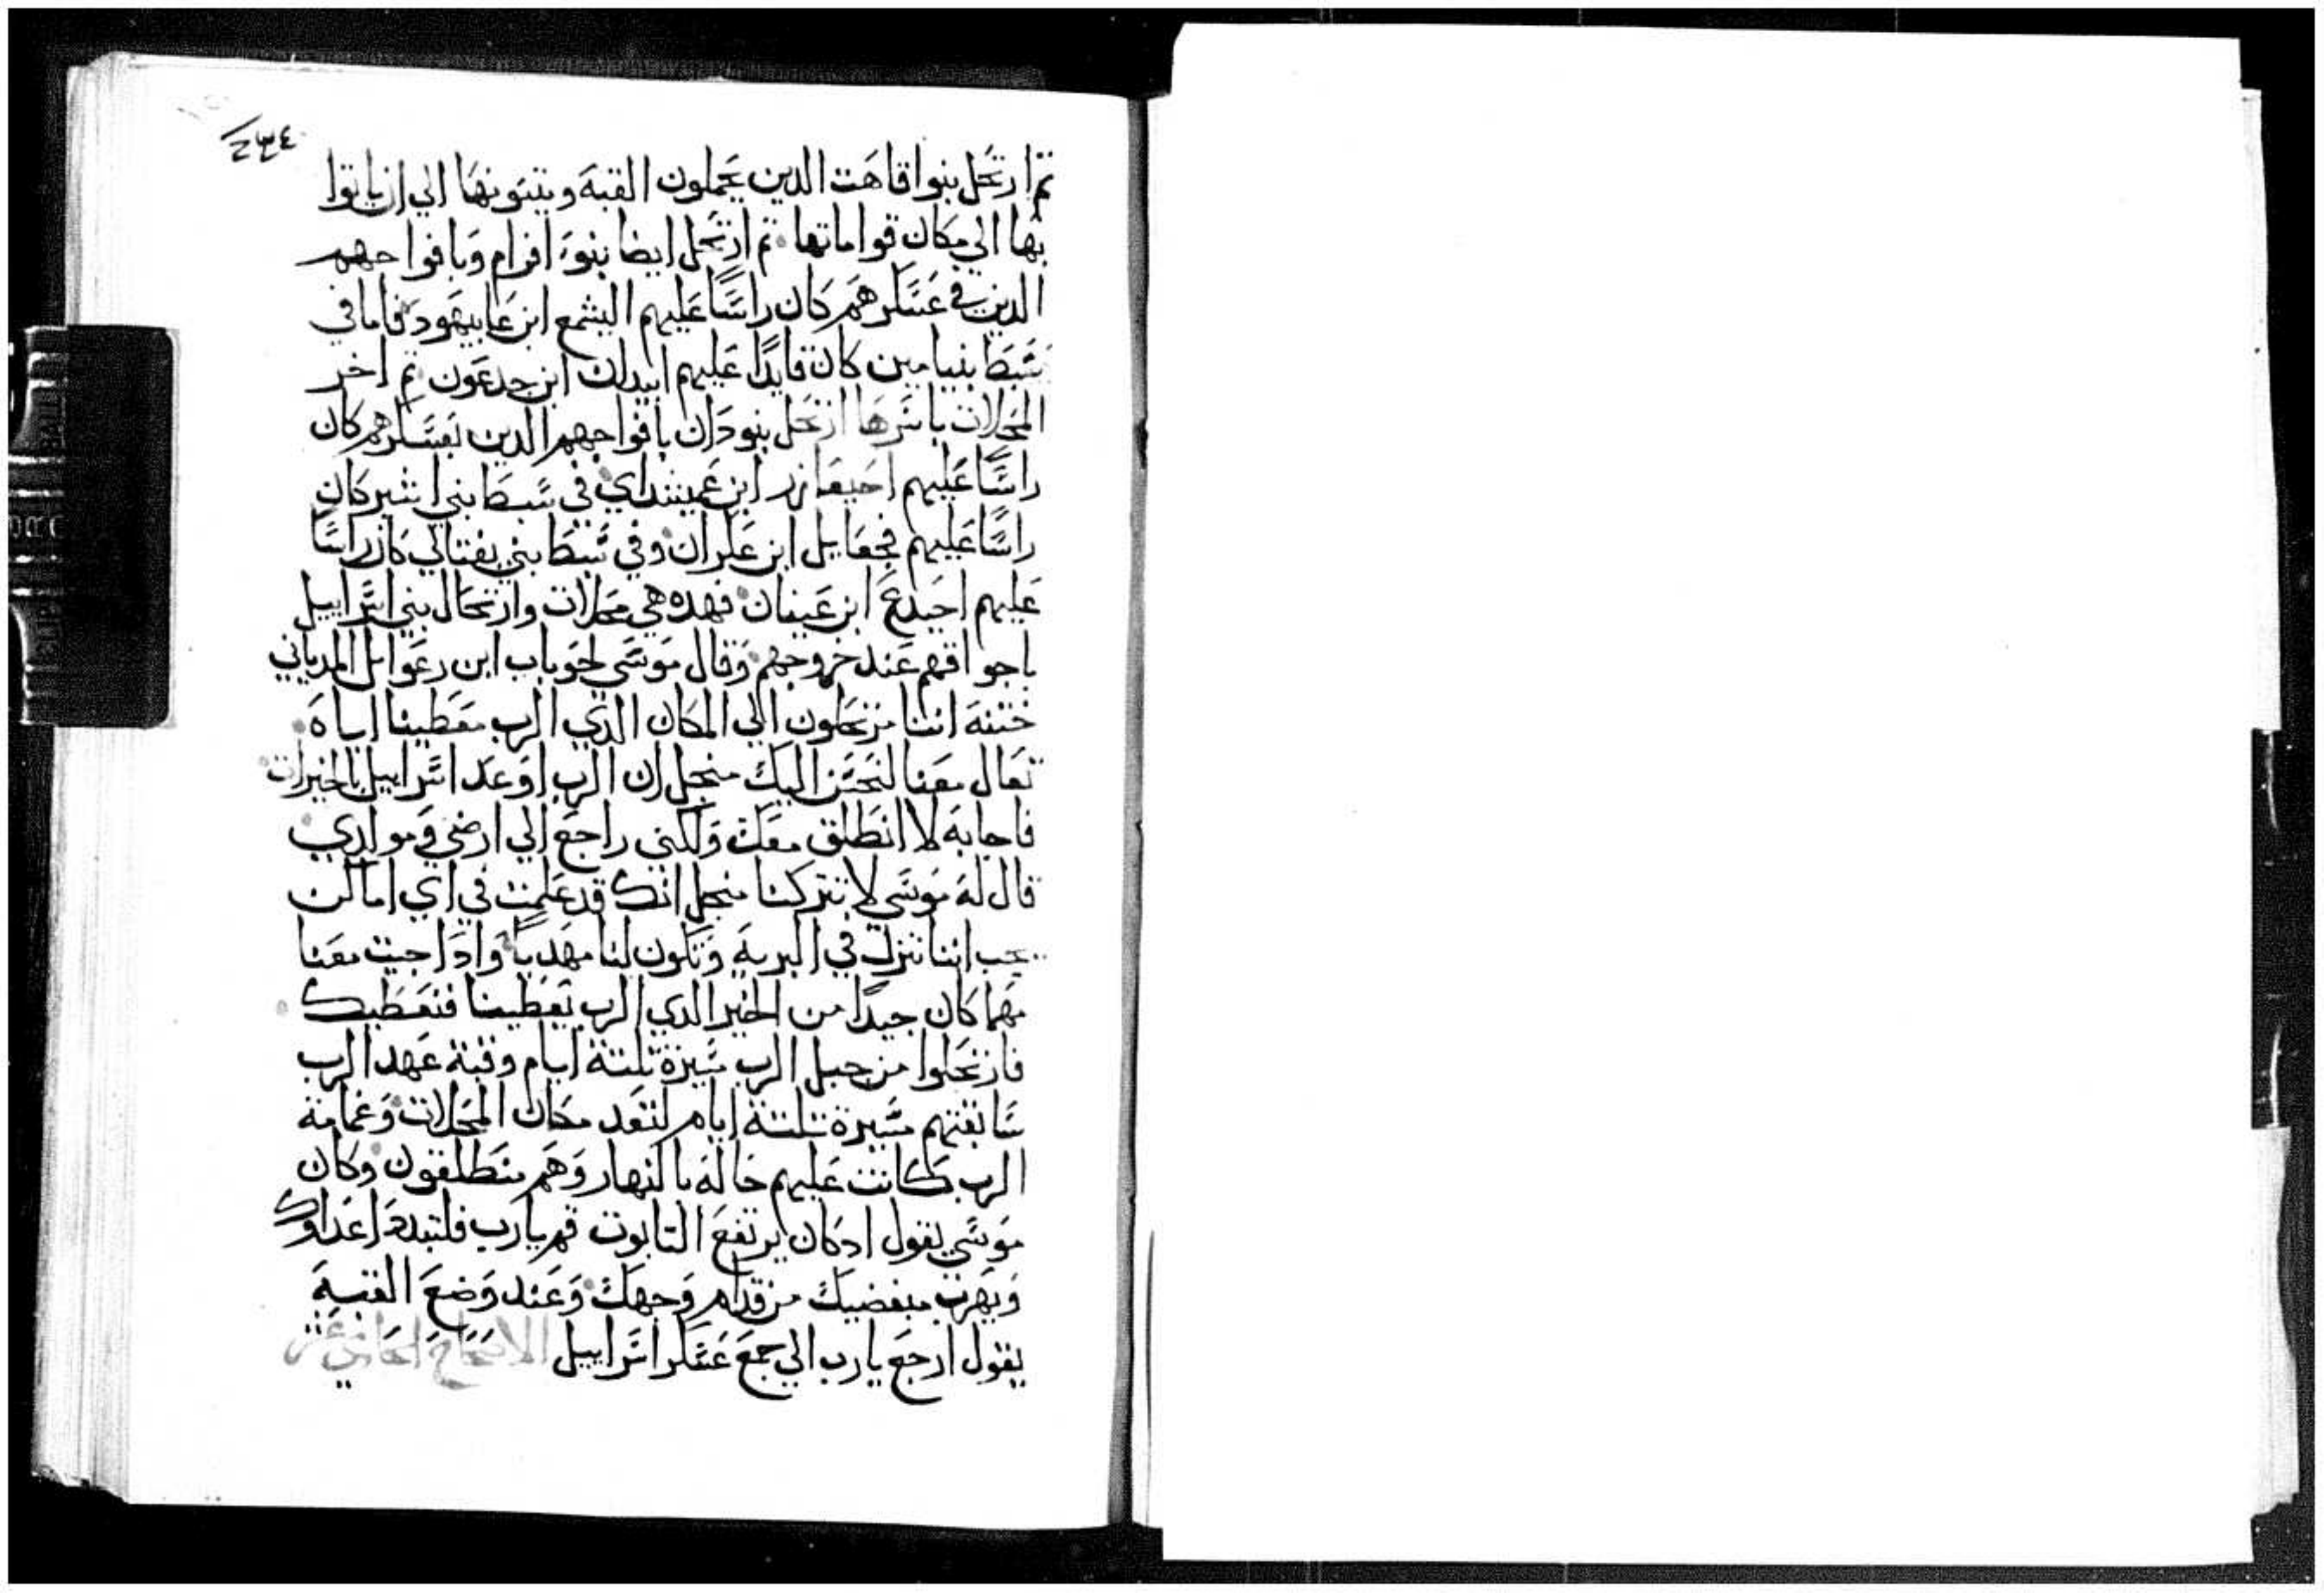 ٢٣٤
تم ارتحل بنوا قاهت الدين يحملون القبة ويتبونها الي ان ياتوا
بها الي مكان قواماتها تم ارتحل ايضا بنوا افرام وبافواجهم
الدين في عسكرهم كان راسا عليهم اليشمع ابن عابيهود فاما في
سبط بنيامين كان قايدا عليهم ابيدان ابن جدعون تم اخر
المحلات باسرها ارتحل بنو دان بافواجهم الدين بعسكرهم كان
راسا عليهم احيعازر ابن عميشداي في سبط بني اشير كان
راسا عليهم فجعايل ابن عكران وفي سبط بني نفتالي كان راسا
عليهم احيدع ابن عينان فهده هي محلات وارتحال بني اسراييل
باجواقهم عند خروجهم وقال موسي لحوباب ابن رعوايل المدياني
ختنه اننا مرتحلون الي المكان الدي الرب معطينا اياه
تعال معنا لنحسن اليك منجل ان الرب اوعد اسراييل بالخيرات
فاجابه لا انطلق معك ولكني راجع الي ارضي ومولدي
قال له موسي لا تتركنا منجل انك قد علمت في اي اماكن
يجب اننا ننزل في البرية وتكون لنا مهديا وادا جيت معنا
مهما كان جيدا من الخير الدي الرب يعطينا فنعطيك
فارتحلوا من جبل الرب مسيرة تلتة ايام وقبة عهد الرب
سابقتهم مسيرة تلتة ايام لتعد مكان المحلات وغمامة
الرب كانت عليهم حاله بالنهار وهم منطلقون وكان
موسي يقول ادكان يرتفع التابوت قم يارب فلتبدد اعداوك
ويهرب مبغضيك من قدام وجهك وعند وضع القبة
يقول ارجع يارب الي جمع عسكر اسراييل الاصحاح الحادي عشر